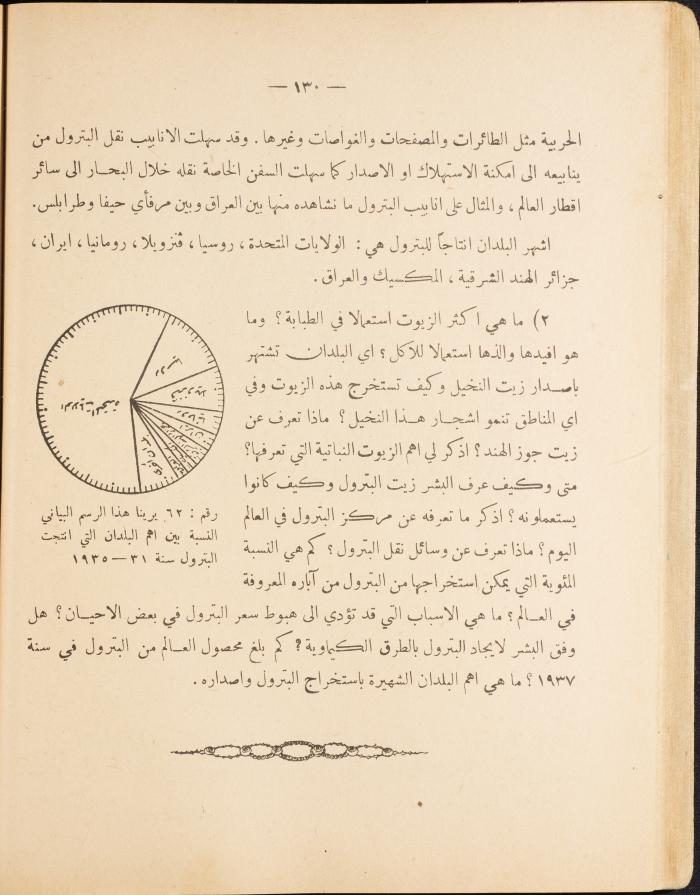 — ١٣٠ —
الحربية مثل الطائرات والمصفحات والغواصات وغيرها . وقد سهلت الانابيب نقل البترول من
ينابيعه الى امكنة الاستهلاك او الاصدار كما سهلت السفن الخاصة نقله خلال البحـار الى سائر
اقطار العالم ، والمثال على انابيب البترول ما نشاهده منها بين العراق وبين مرفأي حيفا وطرابلس.
اشهر البلدان انتاجاً للبترول هي : الولايات المتحدة ، روسيا ، ڤنزويلا ، رومانيا ، ايران ،
جزائر الهند الشرقية ، المكسيك والعراق .
٢) ما هي اكثر الزيوت استعمالا في الطبابة ؟ وما
هو افيدها والذها استعمالا للاكل ؟ اي البلدان تشتهر
باصـدار زيت النخيل وكيف تستخرج هذه الزيوت وفي
اي المناطق تنمو اشجـار هـذا النخيل ؟ ماذا تعرف عن
زيت جوز الهند ؟ اذكر لي اهم الزيوت النباتية التي تعرفها؟
متى وكيف عرف البشر زيت البترول وكيف كانوا
يستعملونه ؟ اذكر ما تعرفه عن مركز البترول في العالم
اليوم ؟ ماذا تعرف عن وسائل نقل البترول ؟ كم هي النسبة
المئوية التي يمكن استخراجها من البترول من آباره المعروفة
في العـالم ؟ ما هي الاسباب التي قد تؤدي الى هبوط سعر البترول في بعض الاحيـان ؟ هل
وفق البشر لايجاد البترول بالطرق الكيماوية ؟ كم بلغ محصول العـالم من البترول في سنة
١٩٣٧ ؟ ما هي اهم البلدان الشهيرة باستخراج البترول واصداره .
روسيا
رومانيا
ايران
الولايات المتحدة
رقم : ٦٢ يرينا هذا الرسم البياني
النسبة بين اهم البلدان التي انتجت
البترول سنة ٣١ — ١٩٣٥